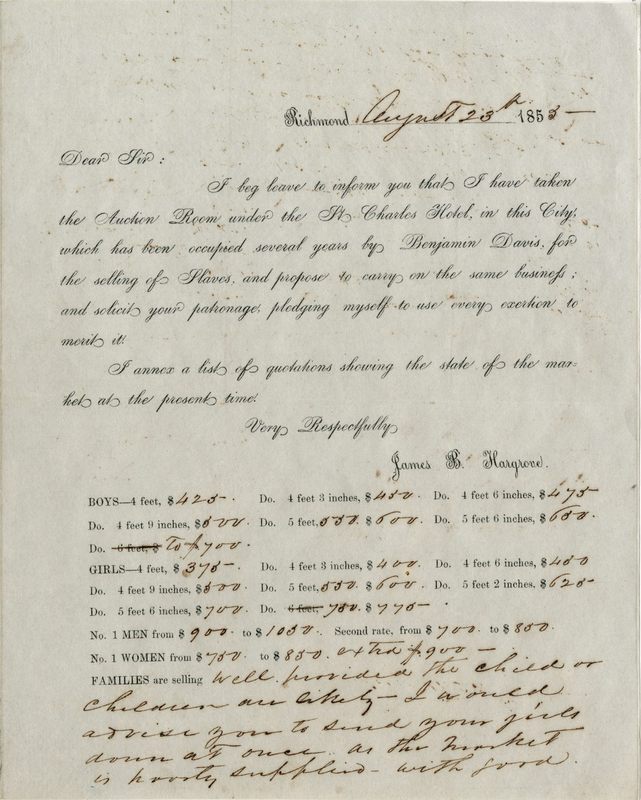 Richmond August 23d 1853-
Dear Sir:
I beg leave to inform you that I have taken
the Auction Room under the St Charles Hotel, in this City,
which has been occupied several years by Benjamin Davis, for
the selling of Slaves, and propose to carry on the same business;
and solicit your patronage, pledging myself to use every exertion to
merit it.
I annex a list of quotations showing the state of the mar-
ket at the present time.
Very Respectfully
James B. Hargrove.
BOYS—4 feet, $425. Do. 4 feet 3 inches, $450. Do. 4 feet 6 inches, $475
Do. 4 feet 9 inches, $500. Do. 5 feet, 550. $600. Do. 5 feet 6 inches, $650.
Do. 6 feet, $ To $700.
GIRLS—4 feet, $375- Do. 4 feet 3 inches, $400. Do. 4 feet 6 inches, $450
Do. 4 feet 9 inches, $500 Do. 5 feet, 550. $600. Do. 5 feet 2 inches. $625
Do. 5 feet 6 inches, $700. Do. 6 feet, 750. $775-
No. 1 MEN from $900. to $1050. Second rate, from $700. to $850.
No. 1 WOMEN from $750. to $850. extra $900-
FAMILIES are selling well. provided the child or
children are likely- I would
advise you to send your girls
down at once as the market
is poorly supplied- with good.